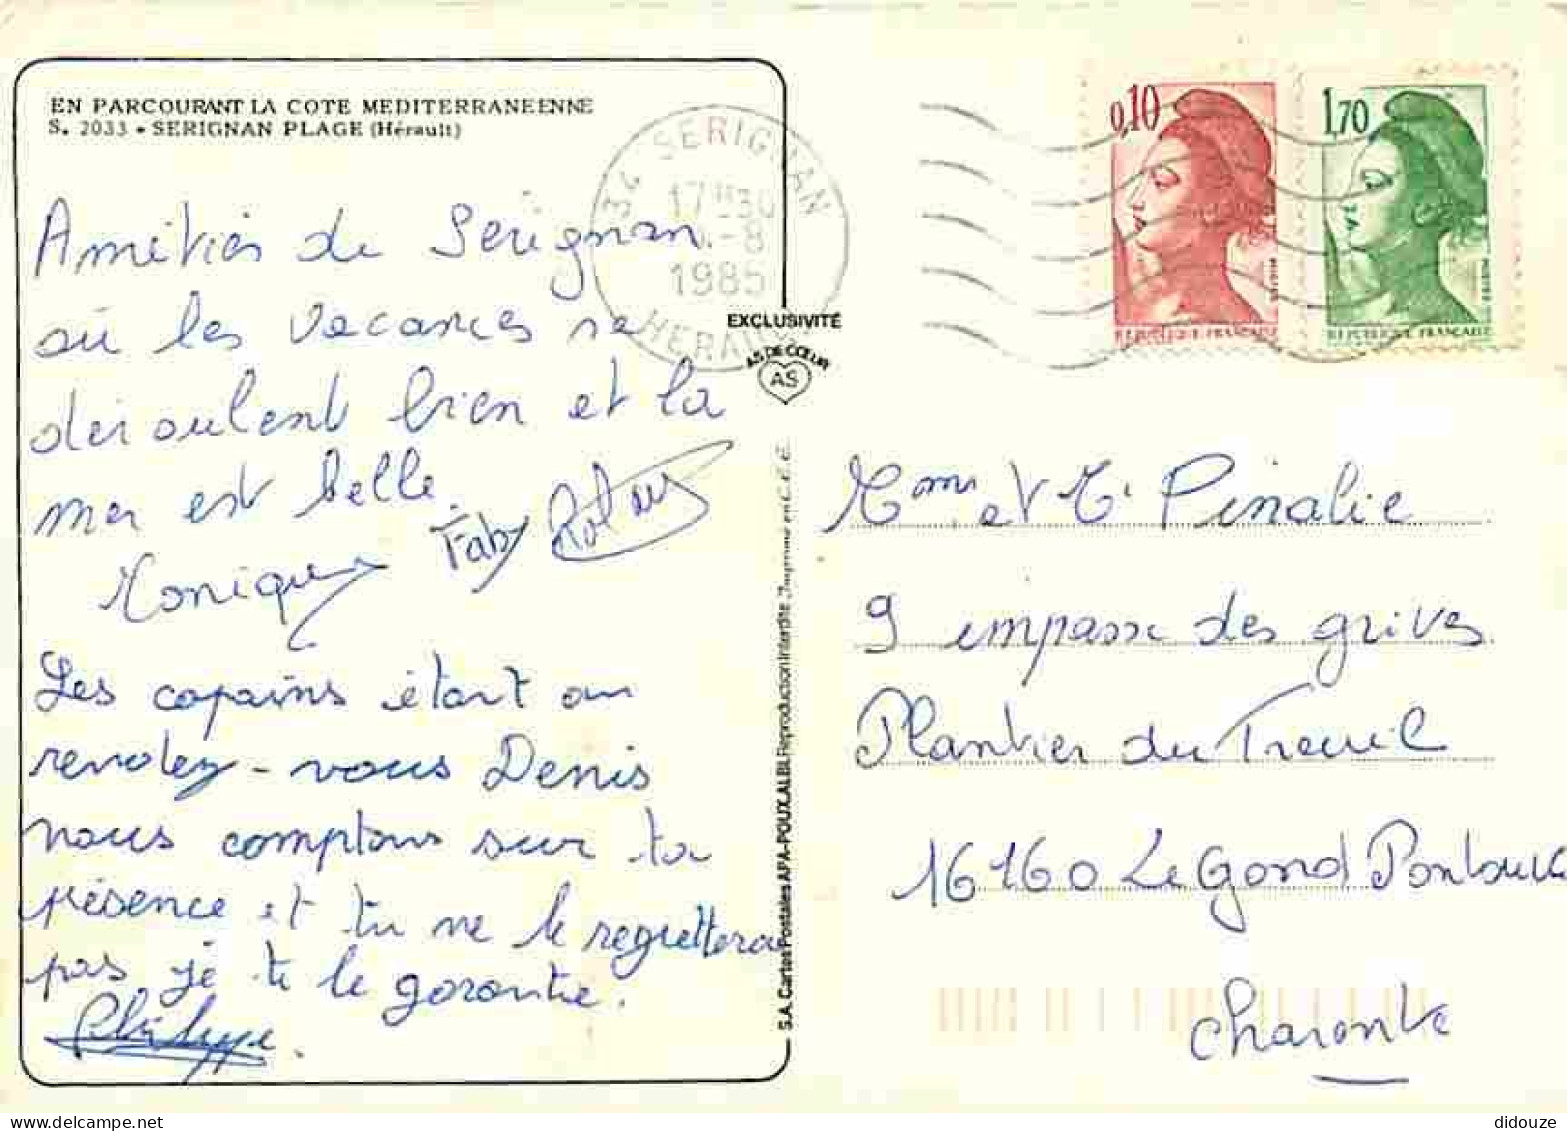 EN PARCOURANT LA COTE MEDITERRANEENNE
S. 2033 - SERIGNAN PLAGE (Hérault)
Amitiés de Serignan
où les vacances se
déroulent bien et la
mer est belle.
Monique Faby Roland
Les copains étant au
rendez-vous Denis
nous comptons sur ta
présence et tu ne le regrettera
pas je te le garantie.
Philippe.
34 SERIGNAN
17H30
-8
1985
HERAULT
EXCLUSIVITÉ
AS DE CŒUR
AS
S.A. Cartes Postales APA-POUX, ALBI. Reproduction Interdite. Imprimé en C.E.E.
0,10
REPUBLIQUE FRANÇAISE
1,70
REPUBLIQUE FRANÇAISE
Mme et Mr Pinalie
9 impasse des grives
Plantier du Treuil
16160 Le Gond Pontouvre
Charente
didouze